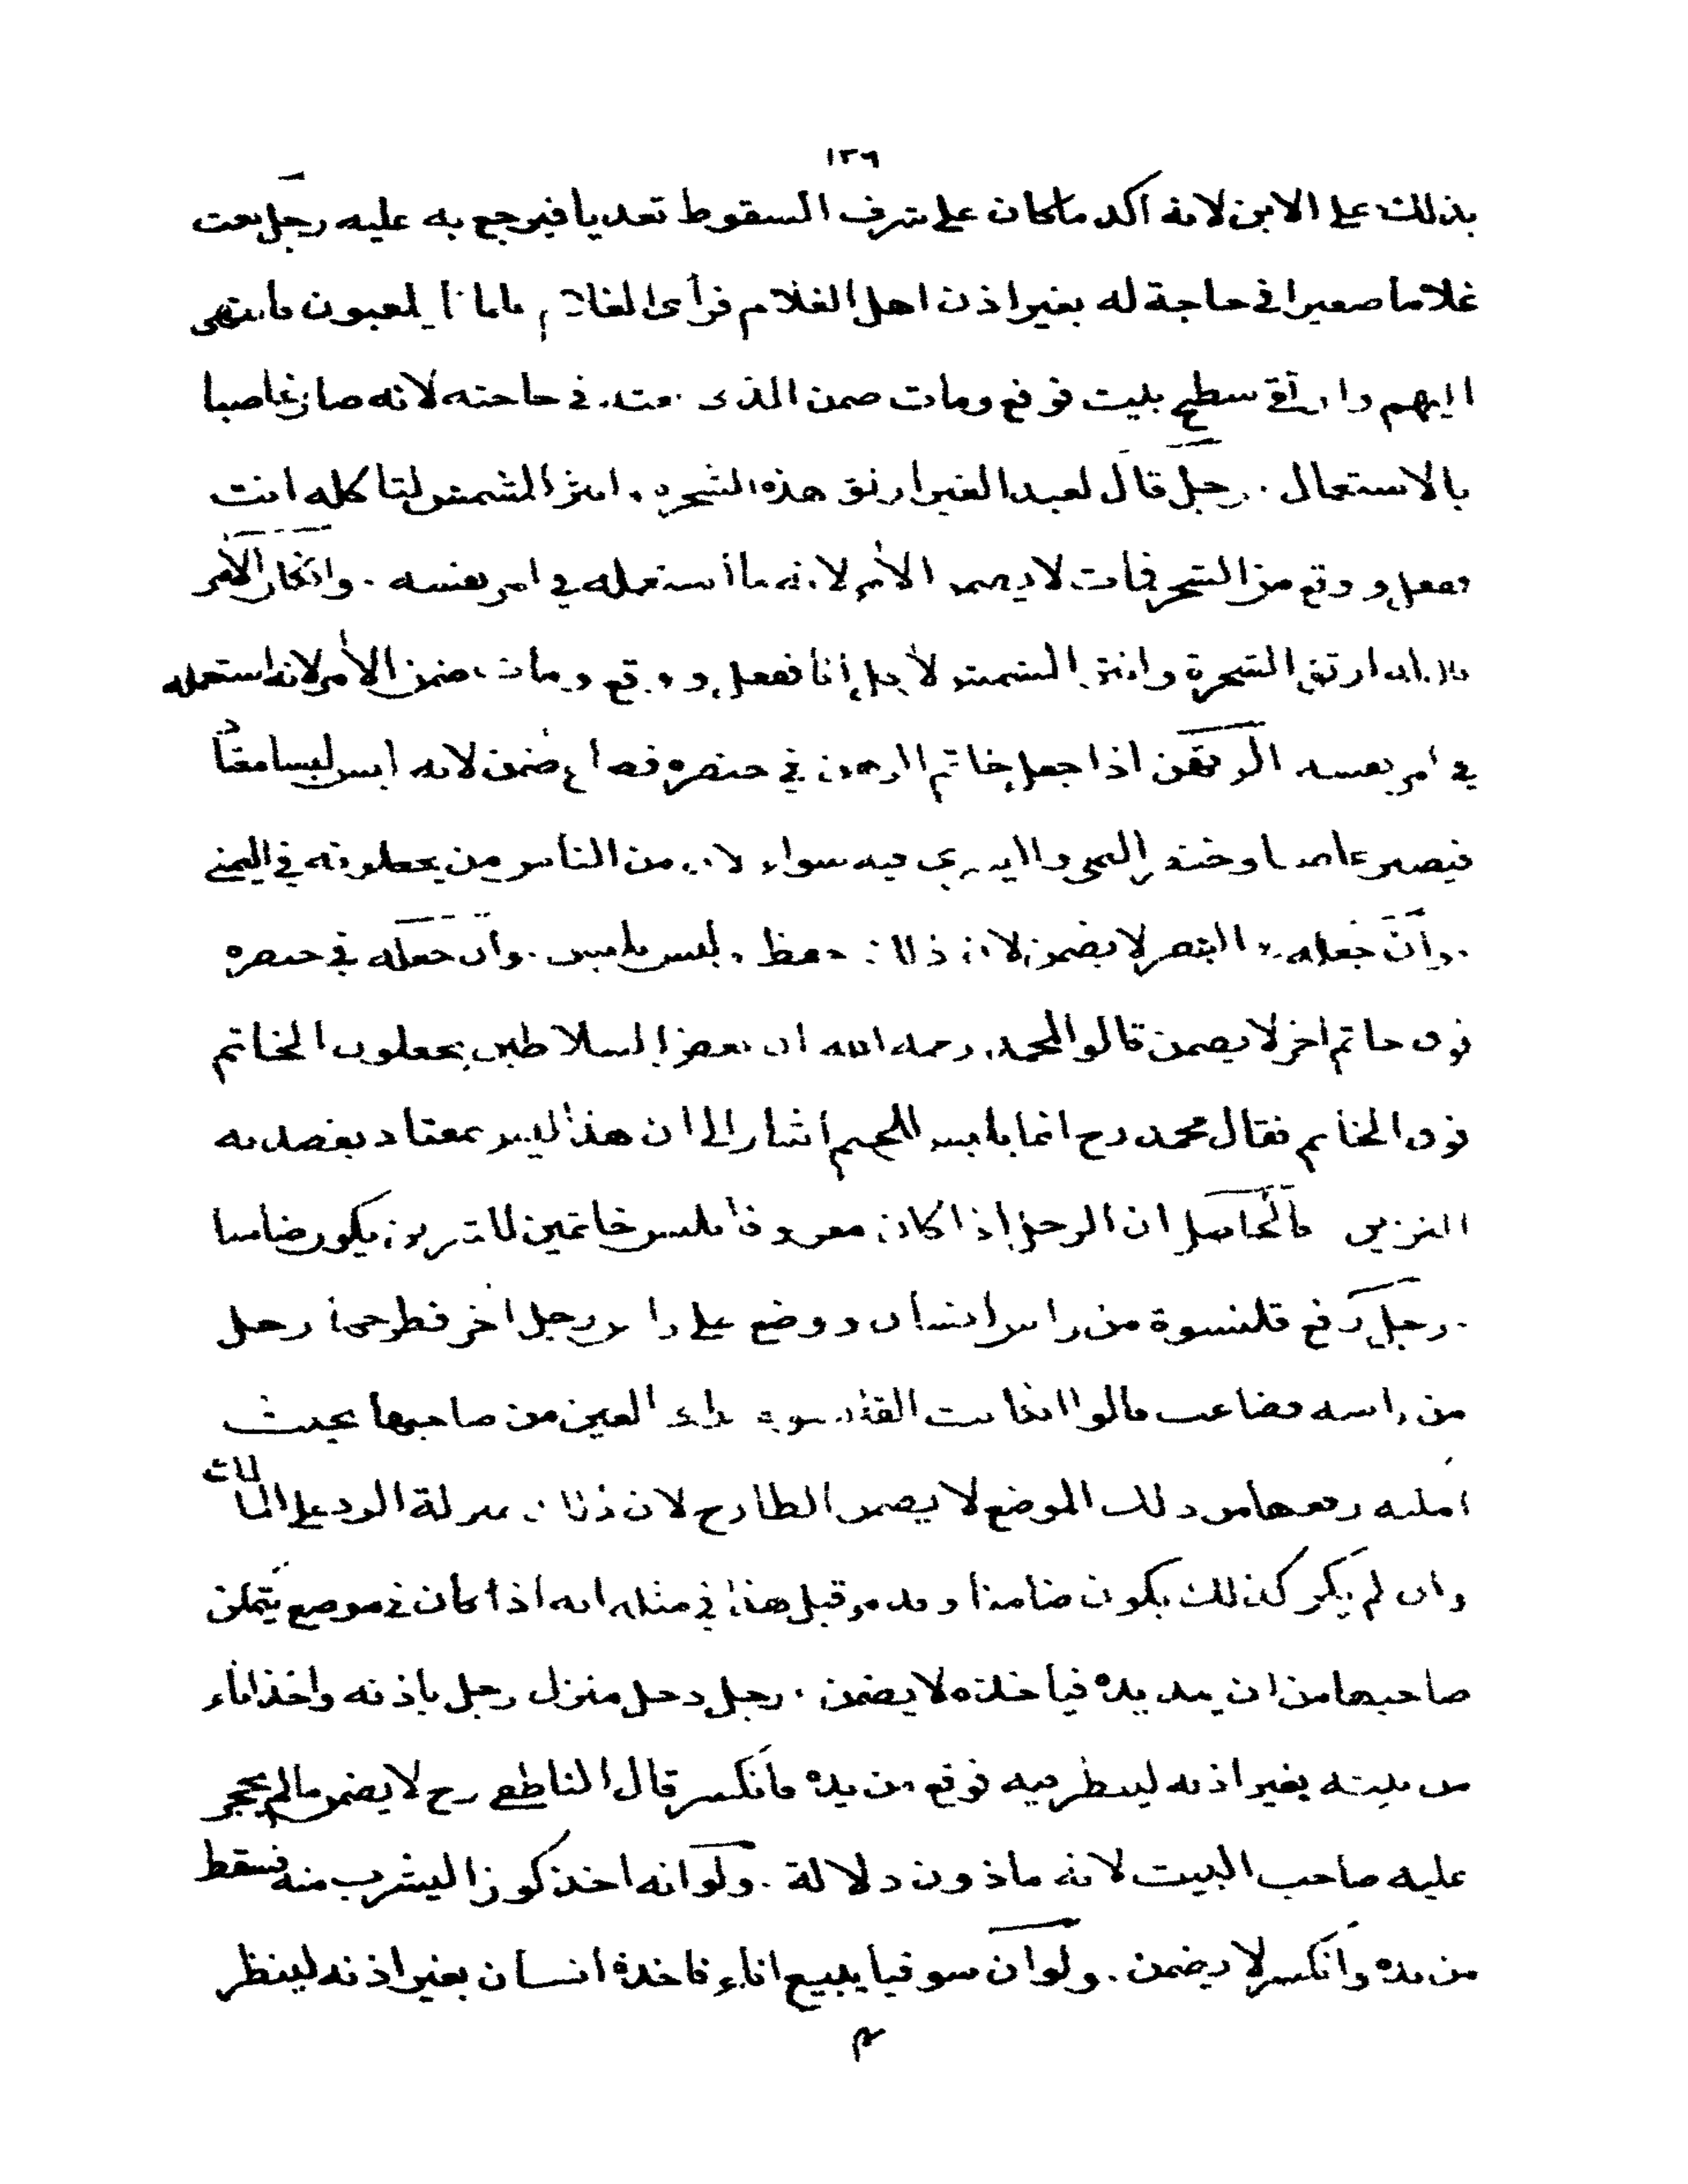 ١٣٦
بذلك على الابن لانه اكد ماكان على شرف السقوط تعديا فيرجع به عليه رجل بعث
غلاما صغيرا في حاجة له بغير اذن اهل الغلام فرأى الغلام غلمانا يلعبون فانتهى
اليهم وارتقى سطح بيت فوقع ومات ضمن الذى بعثه في حاجته لانه صار غاصبا
بالاستعمال . رجل قال لعبد الغير ارتق هذه الشجرة وانثر المشمش لتاكله انت
ففعل ووقع من الشجر فمات لا يضمن الآمر لانه ما استعمله في امر نفسه . وانكان الآمر
قال له ارتق الشجرة وانثر المشمش لأجل انا ففعل ووقع ومات ضمن الآمر لانه استعمله
في امر نفسه المرتهن اذا جعل خاتم الرهن في خنصره فضاع ضمن لانه لبس لبسا معتادا
فيصير غاصبا وخنصر اليمنى واليسرى فيه سواء لان من الناس من يجعلونه في اليمنى
. وان جعله في البنصر لا يضمن لان ذلك حفظ وليس بلبس . وان جعله في خنصره
فوق خاتم اخر لا يضمن قالوا لمحمد رحمه الله ان بعض السلاطين يجعلون الخاتم
فوق الخاتم فقال محمد رح انما يلبس للختم اشار الى ان هذا ليس بمعتاد يقصد به
التزين فالحاصل ان الرجل اذا كان معروفا بلبس خاتمين للتزين يكون ضامنا
. رجل رفع قلنسوة من راس انسان ووضع على راس رجل اخر فطرحها رجل
من راسه فضاعت قالوا انكانت القلنسوة بمراى العين من صاحبها بحيث
امكنه رفعها من ذلك الموضع لا يضمن الطارح لان ذلك بمنزلة الرد على المالك
وان لم يكن كذلك يكون ضامنا وقد مر قبل هذا في مثله انه اذا كان في موضع يتمكن
صاحبها من ان يمد يده فياخذه لا يضمن . رجل دخل منزل رجل باذنه واخذ اناء
من بيته بغير اذنه لينظر فيه فوقع من يده فانكسر قال الناطفي رح لا يضمن مالم يحجر
عليه صاحب البيت لانه ماذون دلالة . ولو انه اخذ كوزا ليشرب منه فسقط
من يده وانكسر لا يضمن . ولو ان سوقيا يبيع اناء فاخذه انسان بغير اذنه لينظر